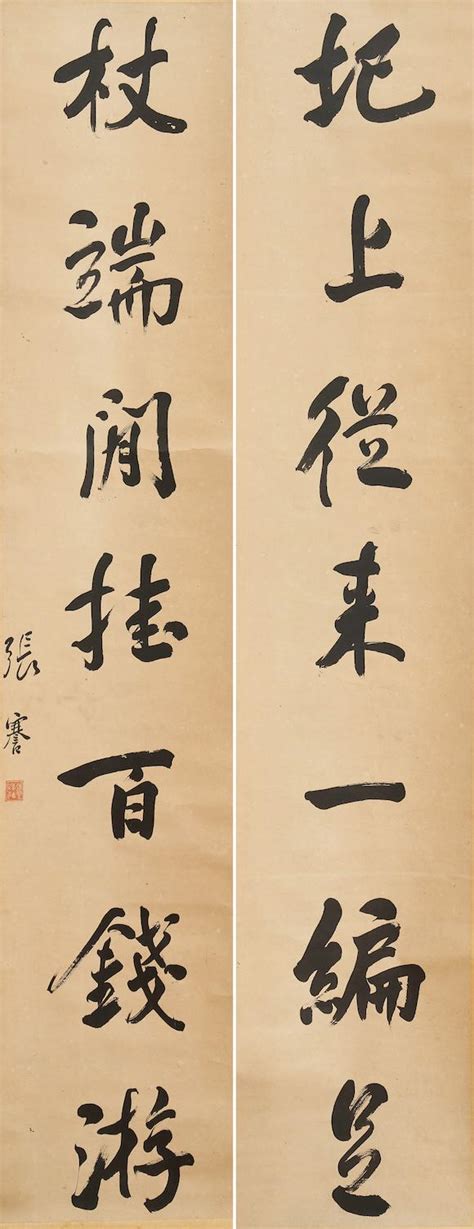 圯上從来一編足
杖端閒挂百錢游
張謇